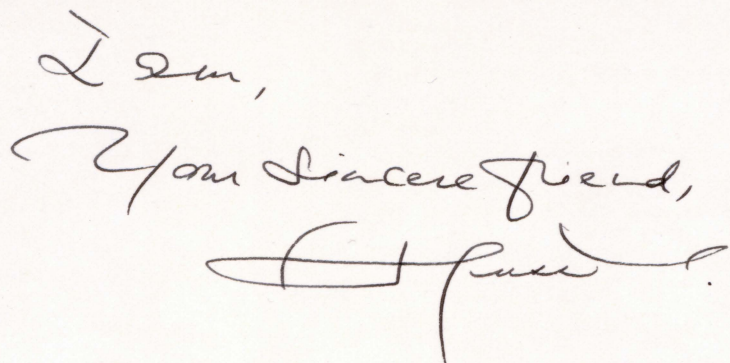 I am,
Your sincere friend,